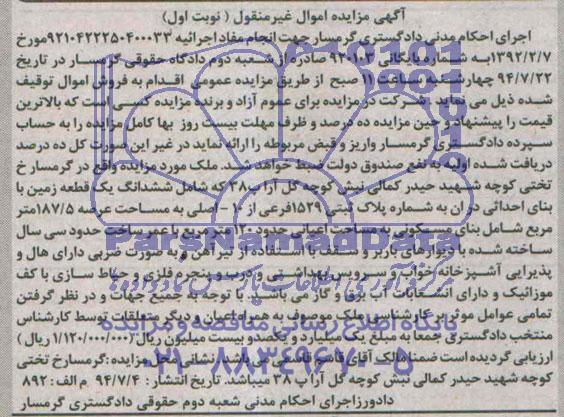 آگهی مزایده اموال غیرمنقول ( نوبت اول )
اجرای احکام مدنی دادگستری گرمسار جهت انجام مفاد اجرائیه ۹۲۱۰۴۲۲۲۵۰۴۰۰۰۳۳ مورخ
۱۳۹۲/۲/۷ به شماره بایگانی ۹۲۰۱۰۳ صادره از شعبه دوم دادگاه حقوقی گرمسار در تاریخ
۹۴/۷/۲۲ چهارشنبه ساعت ۱۱ صبح از طریق مزایده عمومی اقدام به فروش اموال توقیف
شده ذیل می نماید . شرکت در مزایده برای عموم آزاد و برنده مزایده کسی است که بالاترین
قیمت را پیشنهاد و حین مزایده ده درصد و ظرف مهلت بیست روز بها کامل مزایده را به حساب
سپرده دادگستری گرمسار واریز و قبض مربوطه را ارائه نماید در غیر این صورت کل ده درصد
دریافت شده اولیه به نفع صندوق دولت ضبط خواهد شد . ملک مورد مزایده واقع در گرمسار خ
تختی کوچه شهید حیدر کمالی نبش کوچه گل آرا پ ۳۸ که شامل ششدانگ یک قطعه زمین با
بنای احداثی در آن به شماره پلاک ثبتی ۱۵۲۹ فرعی از - اصلی به مساحت عرصه ۱۸۷/۵ متر
مربع شامل بنای مسکونی به مساحت اعیانی حدود ۱۲۰ متر مربع با عمر ساخت حدود سی سال
ساخته شده با دیوارهای باربر و سقف با استفاده از تیرآهن و به صورت ضربی دارای هال و
پذیرایی آشپزخانه خواب و سرویس بهداشتی و درب و پنجره فلزی و حیاط سازی با کف
موزائیک و دارای انشعابات آب برق و گاز می باشد . با توجه به جمیع جهات و در نظر گرفتن
تمامی عوامل موثر بر کارشناسی ملک موصوف به همراه اعیان و دیگر متعلقات توسط کارشناس
منتخب دادگستری جمعا به مبلغ یک میلیارد و یکصد و بیست میلیون ریال (۱/۱۲۰/۰۰۰/۰۰۰ ریال )
ارزیابی گردیده است ضمنا مالک آقای قاسم قاسمی می باشد . نشانی محل مزایده : گرمسار خ تختی
کوچه شهید حیدر کمالی نبش کوچه گل آرا پ ۳۸ میباشد . تاریخ انتشار : ۹۴/۷/۴ م الف : ۸۹۲
دادورز اجرای احکام مدنی شعبه دوم حقوقی دادگستری گرمسار
ParsNamadData
مرکز فرآوری اطلاعات پارس نماد داده ها
پایگاه اطلاع رسانی مناقصه و مزایده
۰۲۱-۸۸۳۴۹۶۷۰-۵